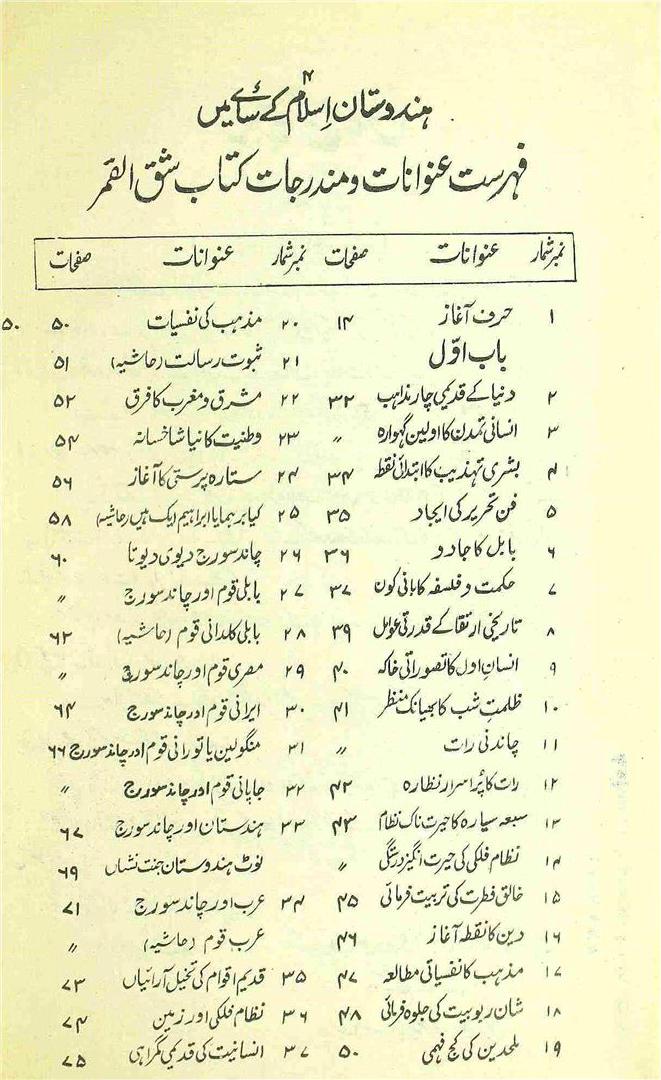 ۴
ہندوستان اِسلام کے سائے میں
فہرست عنوانات و مندرجات کتاب شق القمر
نمبر شمار عنوانات صفحات نمبر شمار عنوانات صفحات
۱ حرف آغاز ۱۴
باب اوّل
۲ دنیا کے قدیمی چار مذاہب ۳۲
۳ انسانی تمدن کا اولین گہوارہ 〃
۴ بشری تہذیب کا ابتدائی نقطہ ۳۴
۵ فن تحریر کی ایجاد ۳۵
۶ بابل کا جادو ۳۶
۷ حکمت و فلسفہ کا بانی کون ۳۷
۸ تاریخی ارتقا کے قدرتی عوامل ۳۹
۹ انسانِ اول کا تصوراتی خاکہ ۴۰
۱۰ ظلمتِ شب کا بھیانک منظر ۴۱
۱۱ چاندنی رات 〃
۱۲ رات کا پُراسرار نظارہ ۴۲
۱۳ سبعہ سیارہ کا حیرت ناک نظام ۴۳
۱۴ نظام فلکی کی حیرت انگیز درستگی 〃
۱۵ خالق فطرت کی تربیت فرمائی ۴۵
۱۶ دین کا نقطہ آغاز ۴۶
۱۷ مذہب کا نفسیاتی مطالعہ ۴۷
۱۸ شان ربوبیت کی جلوہ فرمائی ۴۸
۱۹ ملحدین کی کج فہمی ۵۰
۲۰ مذہب کی نفسیات ۵۰ ۵۰
۲۱ ثبوت رسالت (حاشیہ) ۵۱
۲۲ مشرق و مغرب کا فرق ۵۲
۲۳ وطنیت کا نیا شاخسانہ ۵۴
۲۴ ستارہ پرستی کا آغاز ۵۶
۲۵ کیا برہما یا ابراہیم ایک ہیں (حاشیہ) ۵۸
۲۶ چاند سورج دیوی دیوتا ۶۰
۲۷ بابلی قوم اور چاند سورج 〃
۲۸ بابلی کلدانی قوم (حاشیہ) ۶۲
۲۹ مصری قوم اور چاند سورج 〃
۳۰ ایرانی قوم اور چاند سورج ۶۴
۳۱ منگولین یا تورانی قوم اور چاند سورج ۶۶
۳۲ جاپانی قوم اور چاند سورج 〃
۳۳ ہندستان اور چاند سورج ۶۷
نوٹ ہندوستان جنت نشاں ۶۹
۳۴ عرب اور چاند سورج ۷۱
عرب قوم (حاشیہ) 〃
۳۵ قدیم اقوام کی تخیل آرائیاں ۷۳
۳۶ نظام فلکی اور زمین ۷۴
۳۷ انسانیت کی قدیمی گمراہی ۷۵